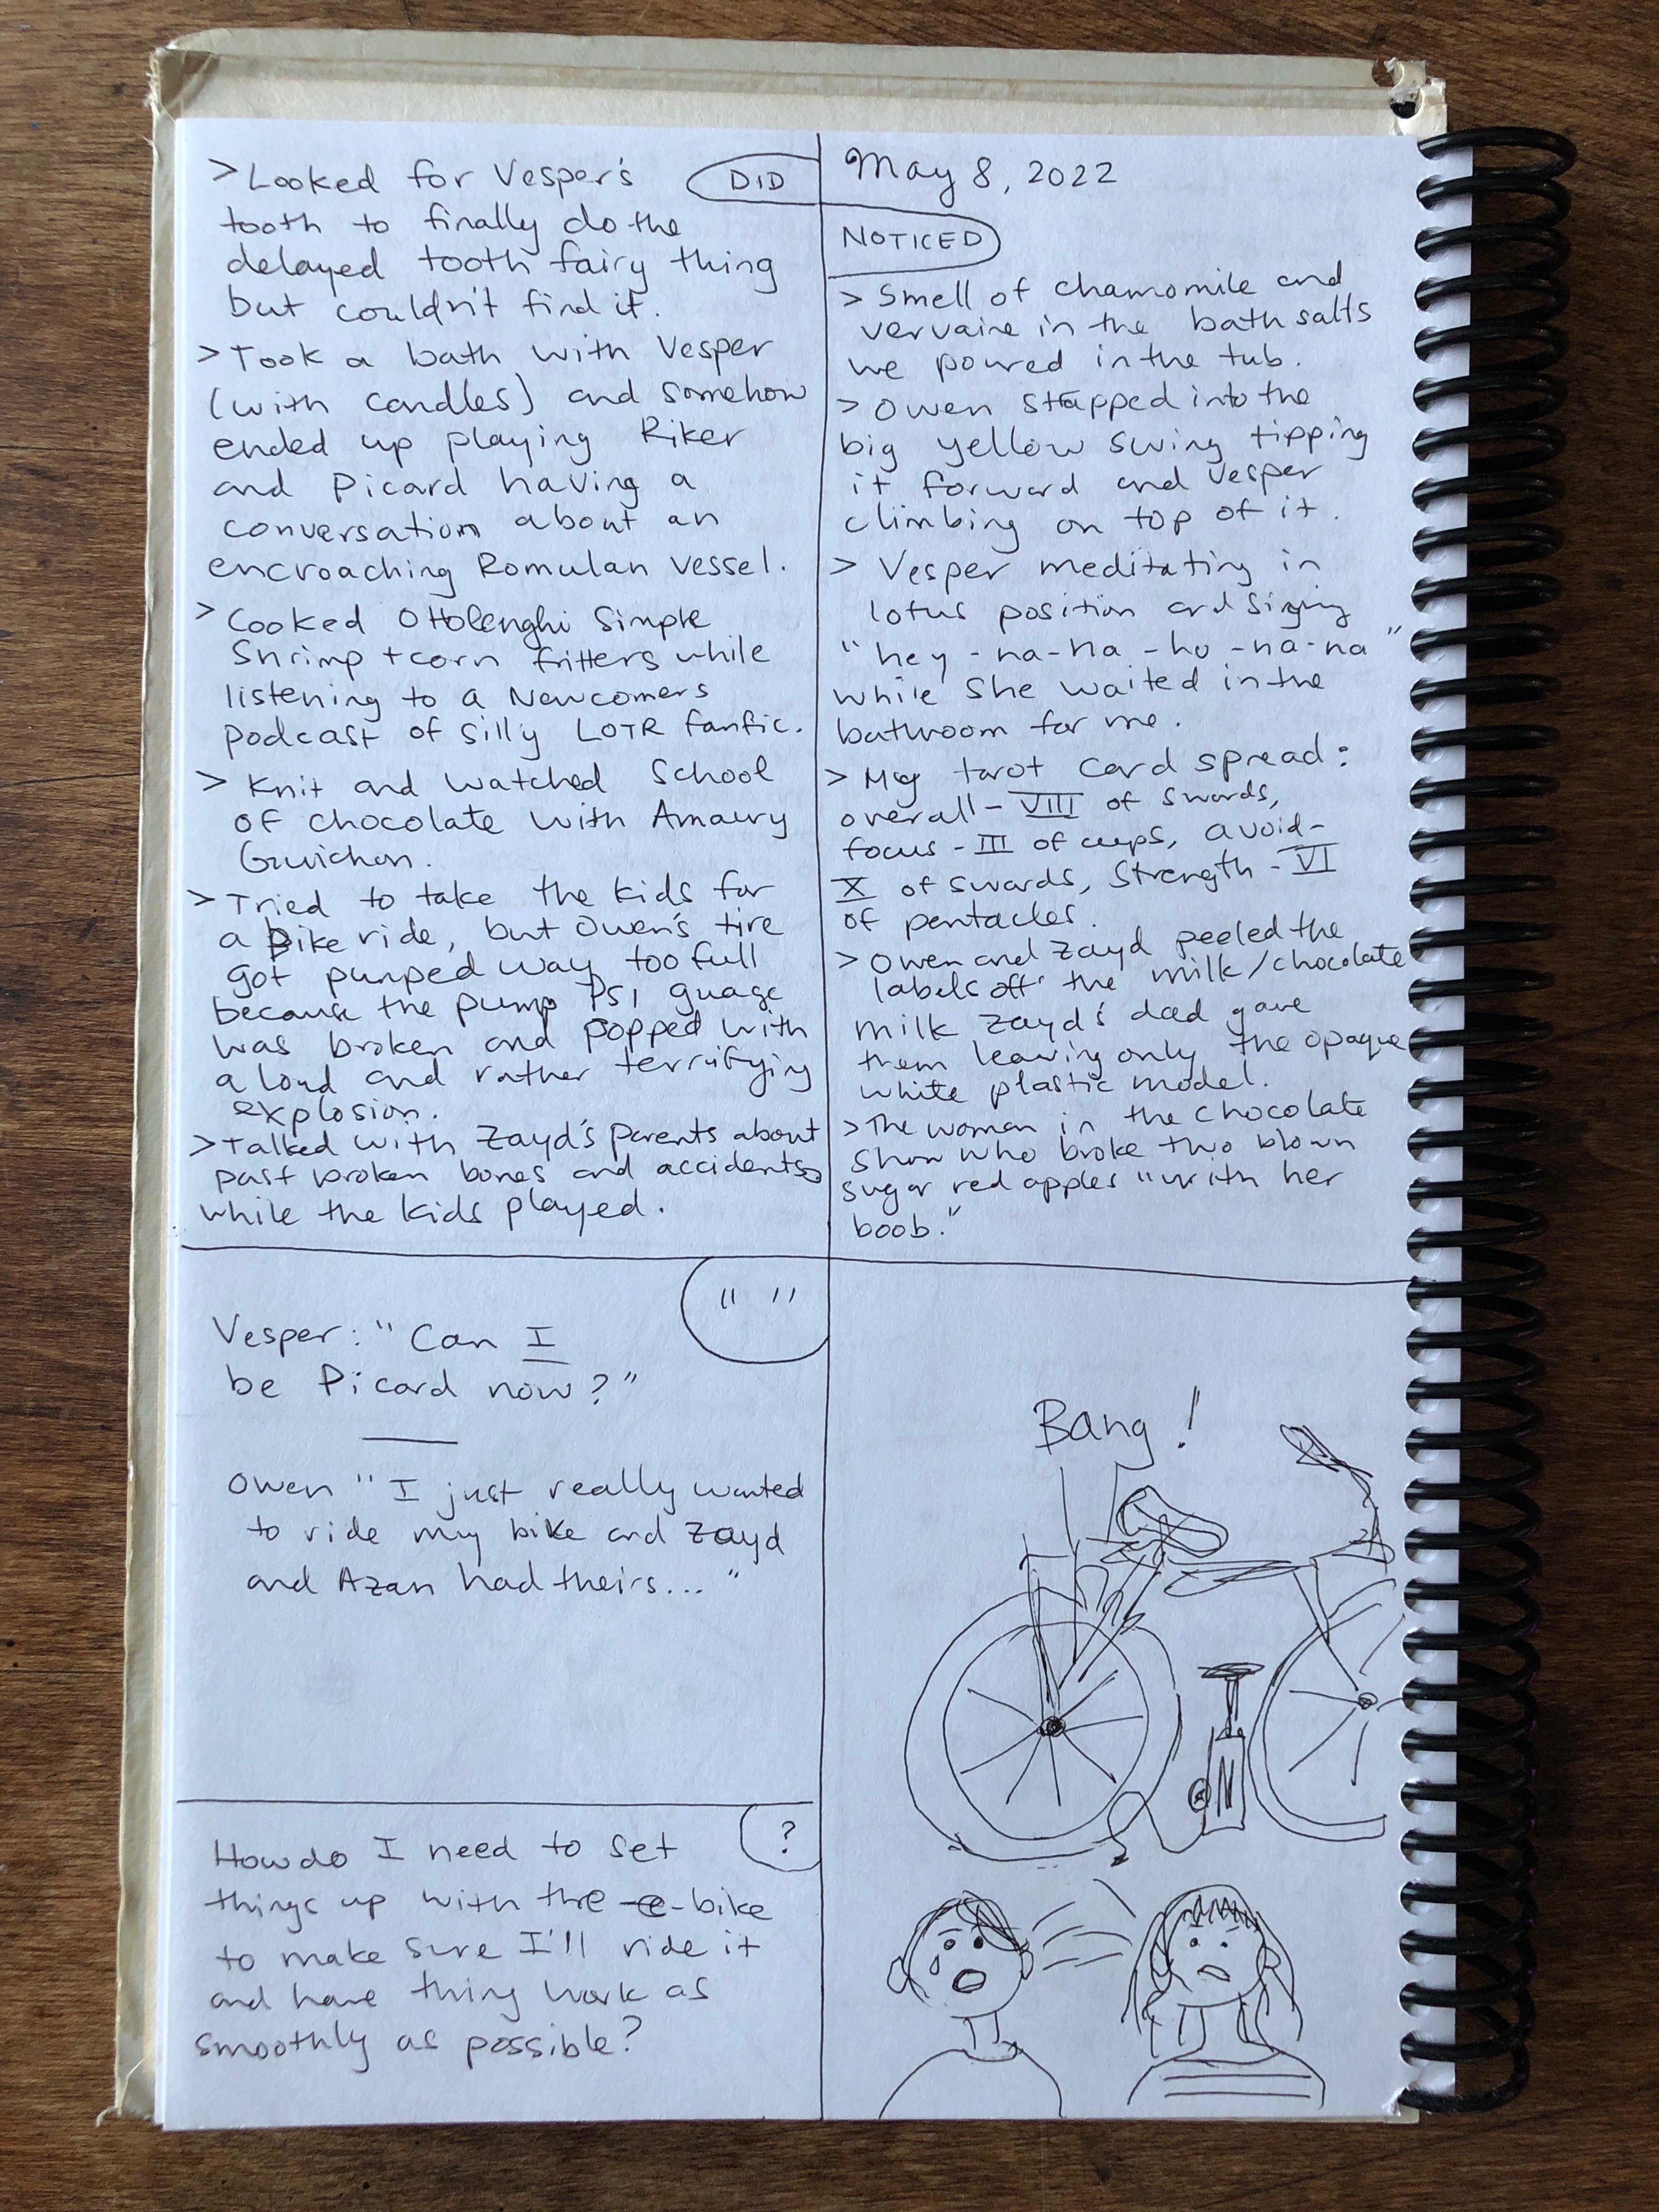 > Looked for Vesper's
tooth to finally do the
delayed tooth fairy thing
but couldn't find it.
> Took a bath with Vesper
(with candles) and somehow
ended up playing Riker
and Picard having a
conversation about an
encroaching Romulan vessel.
> Cooked Ottolenghi Simple
Shrimp + corn fritters while
listening to a Newcomers
podcast of silly LOTR fanfic.
> Knit and watched School
of Chocolate with Amaury
Guichon.
> Tried to take the kids for
a Bike ride, but Owen's tire
got pumped way too full
because the pump PSI guage
was broken and popped with
a loud and rather terrifying
explosion.
> Talked with Zayd's parents about
past broken bones and accidents
while the kids played.
DID
May 8, 2022
NOTICED
> Smell of chamomile and
vervaine in the bath salts
we poured in the tub.
> Owen strapped into the
big yellow swing tipping
it forward and Vesper
climbing on top of it.
> Vesper meditating in
lotus position and singing
"hey-na-na-hu-na-na"
while she waited in the
bathroom for me.
> My tarot card spread:
overall - VIII of swords,
focus - III of cups, avoid -
X of swords, Strength - VI
of pentacles.
> Owen and Zayd peeled the
labels off the milk/chocolate
milk Zayd's dad gave
them leaving only the opaque
white plastic model.
> The woman in the chocolate
show who broke two blown
sugar red apples "with her
boob."
" "
Vesper: "Can I
be Picard now?"
Owen "I just really wanted
to ride my bike and Zayd
and Azan had theirs..."
?
How do I need to set
things up with the e-bike
to make sure I'll ride it
and have thing work as
smoothly as possible?
Bang!